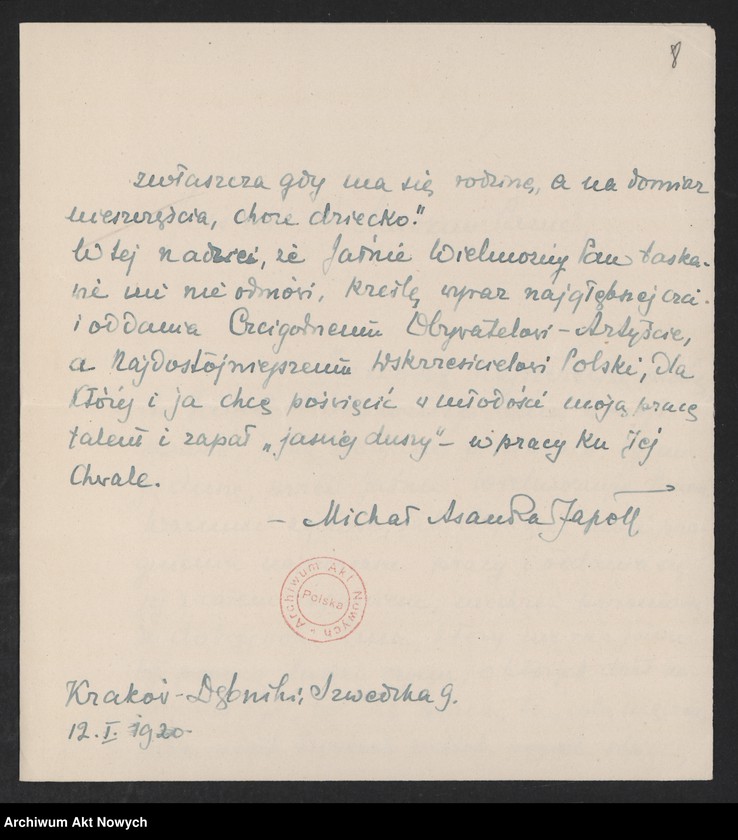 8
zwłaszcza gdy ma się rodzinę, a na domiar
nieszczęścia, chore dziecko."
W tej nadziei, że Jaśnie Wielmożny Pan łaska-
wie mi nie odmówi, kreślę wyraz najgłębszej czci
i oddania Czcigodnemu Obywatelowi - Artyście,
a Najdostojniejszemu Wskrzesicielowi Polski, dla
Której i ja chcę poświęcić w młodości moją pracę
talent i zapał „jasnej duszy" - w pracy ku Jej
Chwale.
- Michał Asanka Japołł
Archiwum Akt Nowych - Polska
Kraków - Dębniki, Szwedzka 9.
12. I. 1920.
Archiwum Akt Nowych